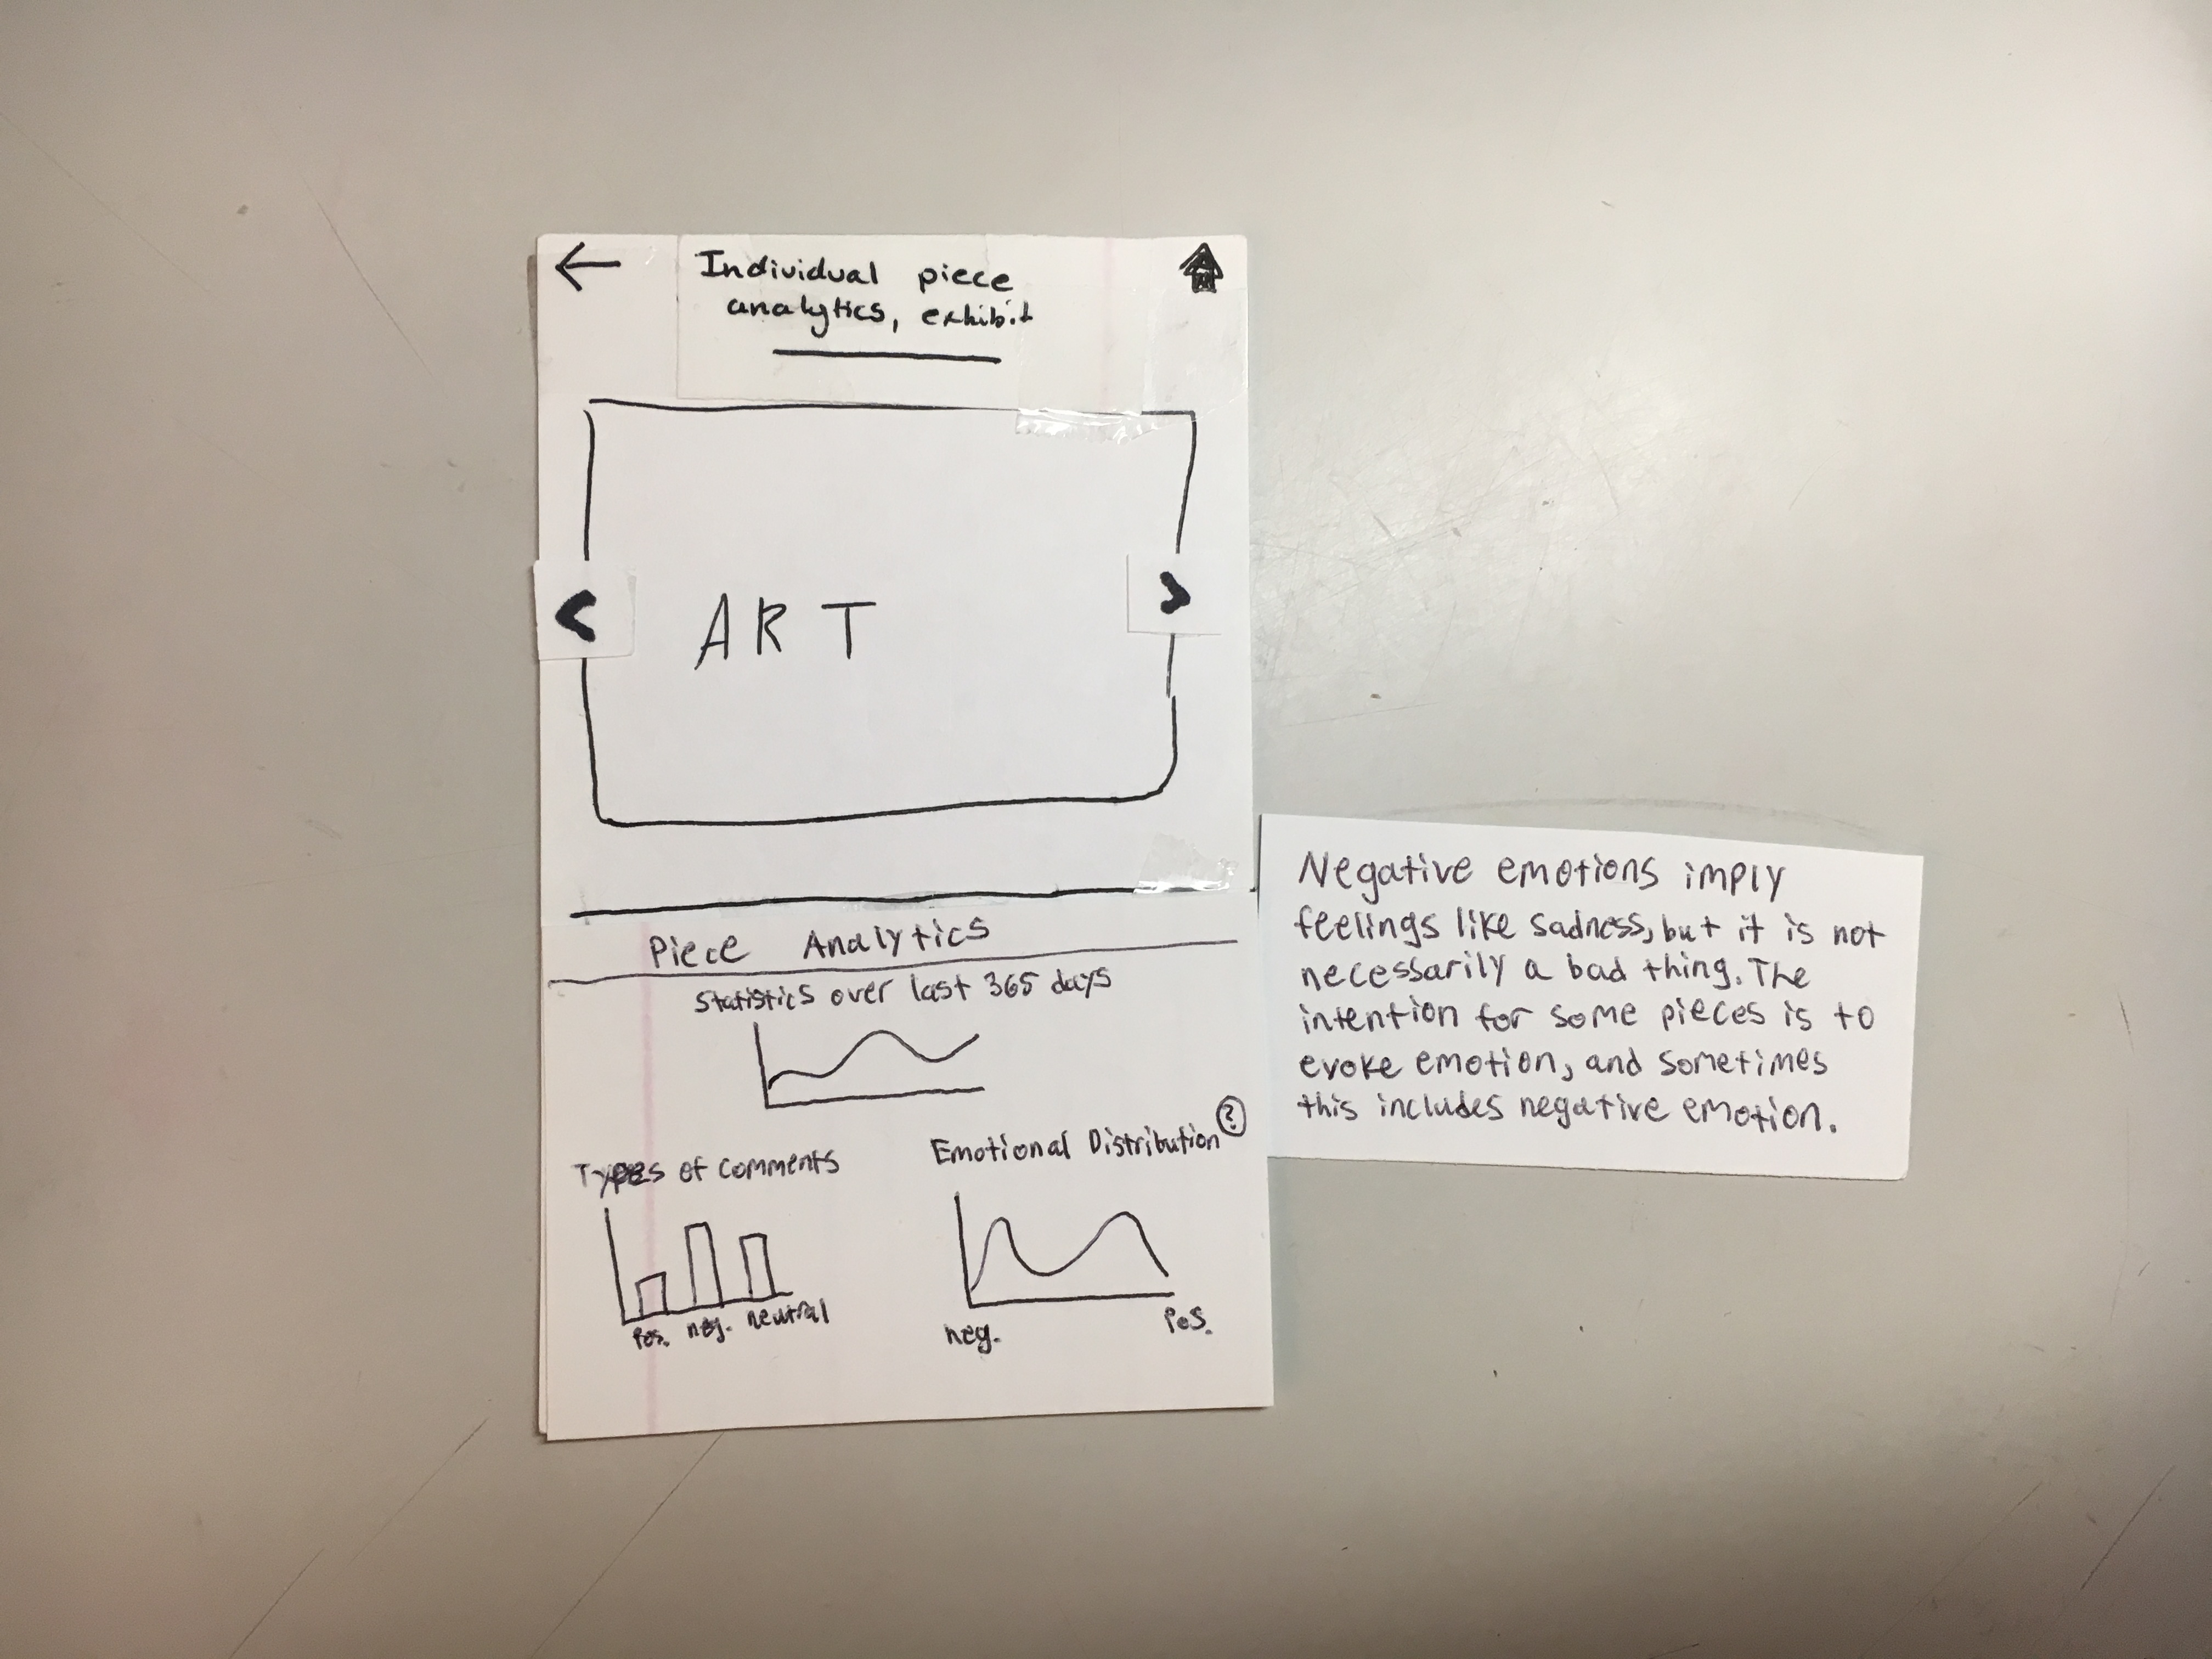 Individual piece
analytics, exhibit
ART
Piece Analytics
Statistics over last 365 days
Types of comments
Pos. neg. neutral
Emotional Distribution ?
neg. Pos.
Negative emotions imply
feelings like sadness, but it is not
necessarily a bad thing. The
intention for some pieces is to
evoke emotion, and sometimes
this includes negative emotion.